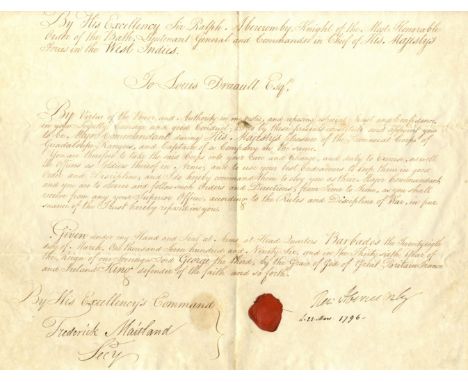 By His Excellency Sir Ralph Abercromby, Knight of the Most Honorable
Order of the Bath, Lieutenant General and Commander in Chief of His Majesty's
Forces in the West Indies.
To Louis Druault Esqr.
By Virtue of the Power and Authority in me and reposing especial Trust and Confidence
in your Loyalty Courage and good Conduct, I do by these presents constitute and appoint you
to be Major Commandant during His Majesty's Pleasure of the Provincial Corps of
Guadaloupe Rangers, and Captain of a Company in the same.
You are therefore to take the said Corps into your Care and Charge, and duly to exercise as well
the Officers as Soldiers thereof in Arms, and to use your best Endeavours to keep them in good
Order and Discipline, and I do hereby command them to obey you as their Major Commandant
and you are to observe and follow such Orders and Directions, from Time to Time, as you shall
receive from any your Superior Officer, according to the Rules and Discipline of War, in pur=
suance of the Trust hereby reposed in you.
Given under my Hand and Seal at Arms at Head Quarters Barbados the Twenty eight
day of March One thousand Seven hundred and Ninety Six, and in the Thirty sixth Year of
the Reign of our Sovereign Lord George the Third, by the Grace of God of Great Britain France
and Ireland King defender of the faith and so forth.
By His Excellency's Command
Frederick Maitland
Secy
1796